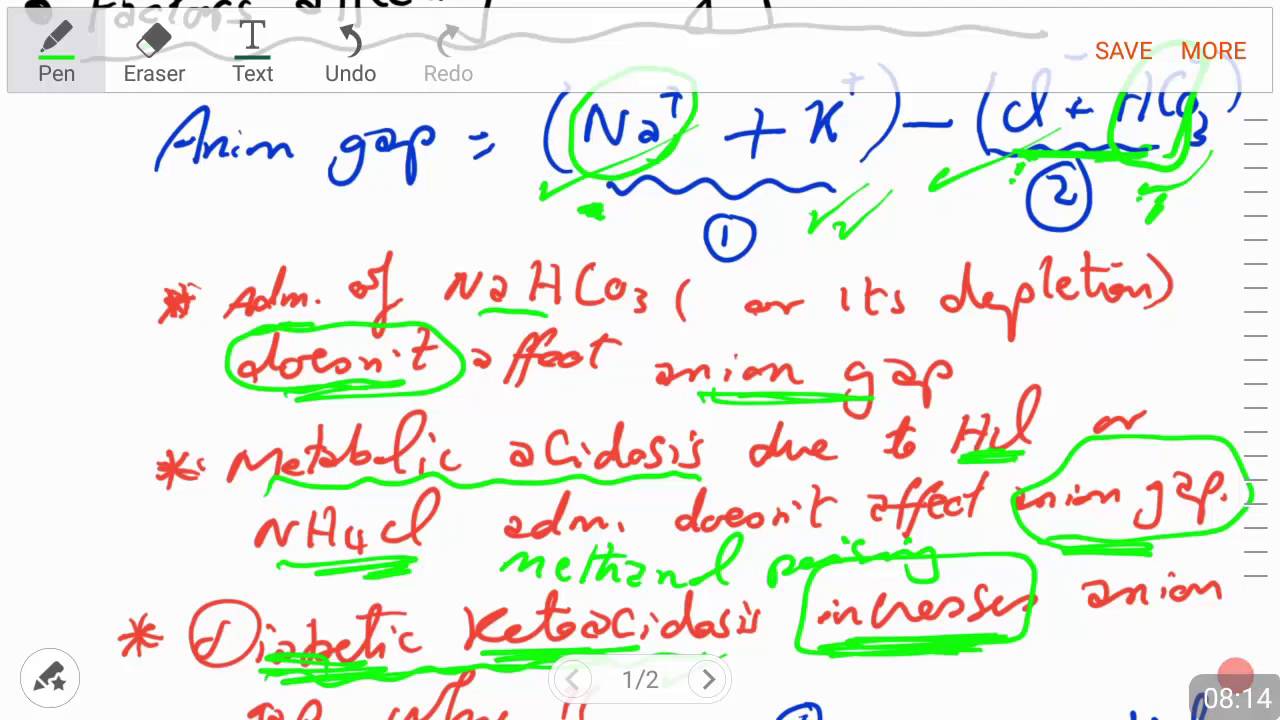 Factors affec
Pen Eraser Text Undo Redo SAVE MORE
Anion gap = (Na+ + K+) - (Cl- + HCO3-)
1 2
* Adm. of NaHCO3 ( or its depletion)
doesn't affect anion gap
* Metabolic acidosis due to HCl or
NH4Cl adm. doesn't affect anion gap.
methanol
* Diabetic Ketoacidosis increases anion
1/2
gap why
08:14